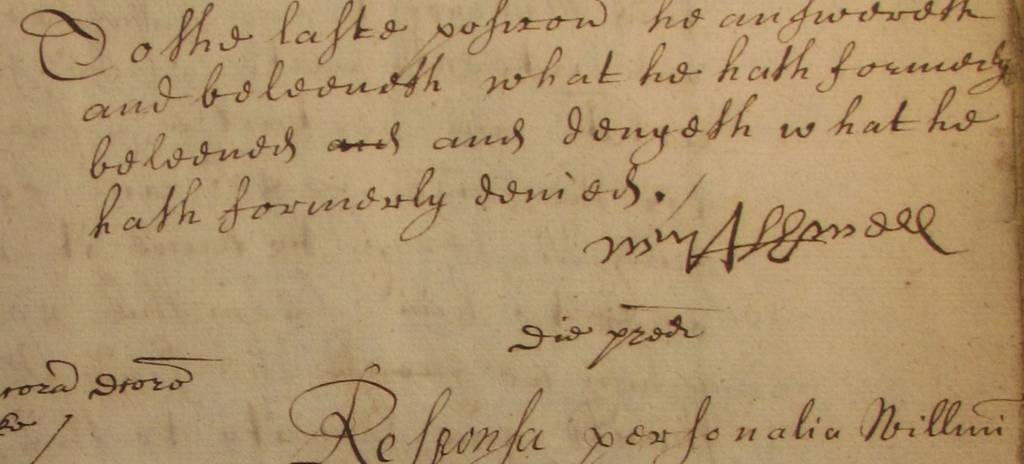 To the laste posicon he answereth
and beleeveth what he hath formerly
beleeved and and denyeth what he
hath formerly denied ./
Wm Ashwell
die pred
cora dcoro
Responsa personalia Willmi